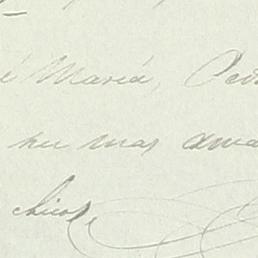 é María, Ped
su mas ama
chicos,